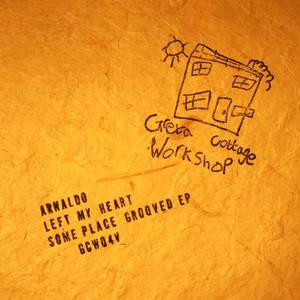 Greta Cottage
Workshop
ARNALDO
LEFT MY HEART
SOME PLACE GROOVED EP
GCW04V